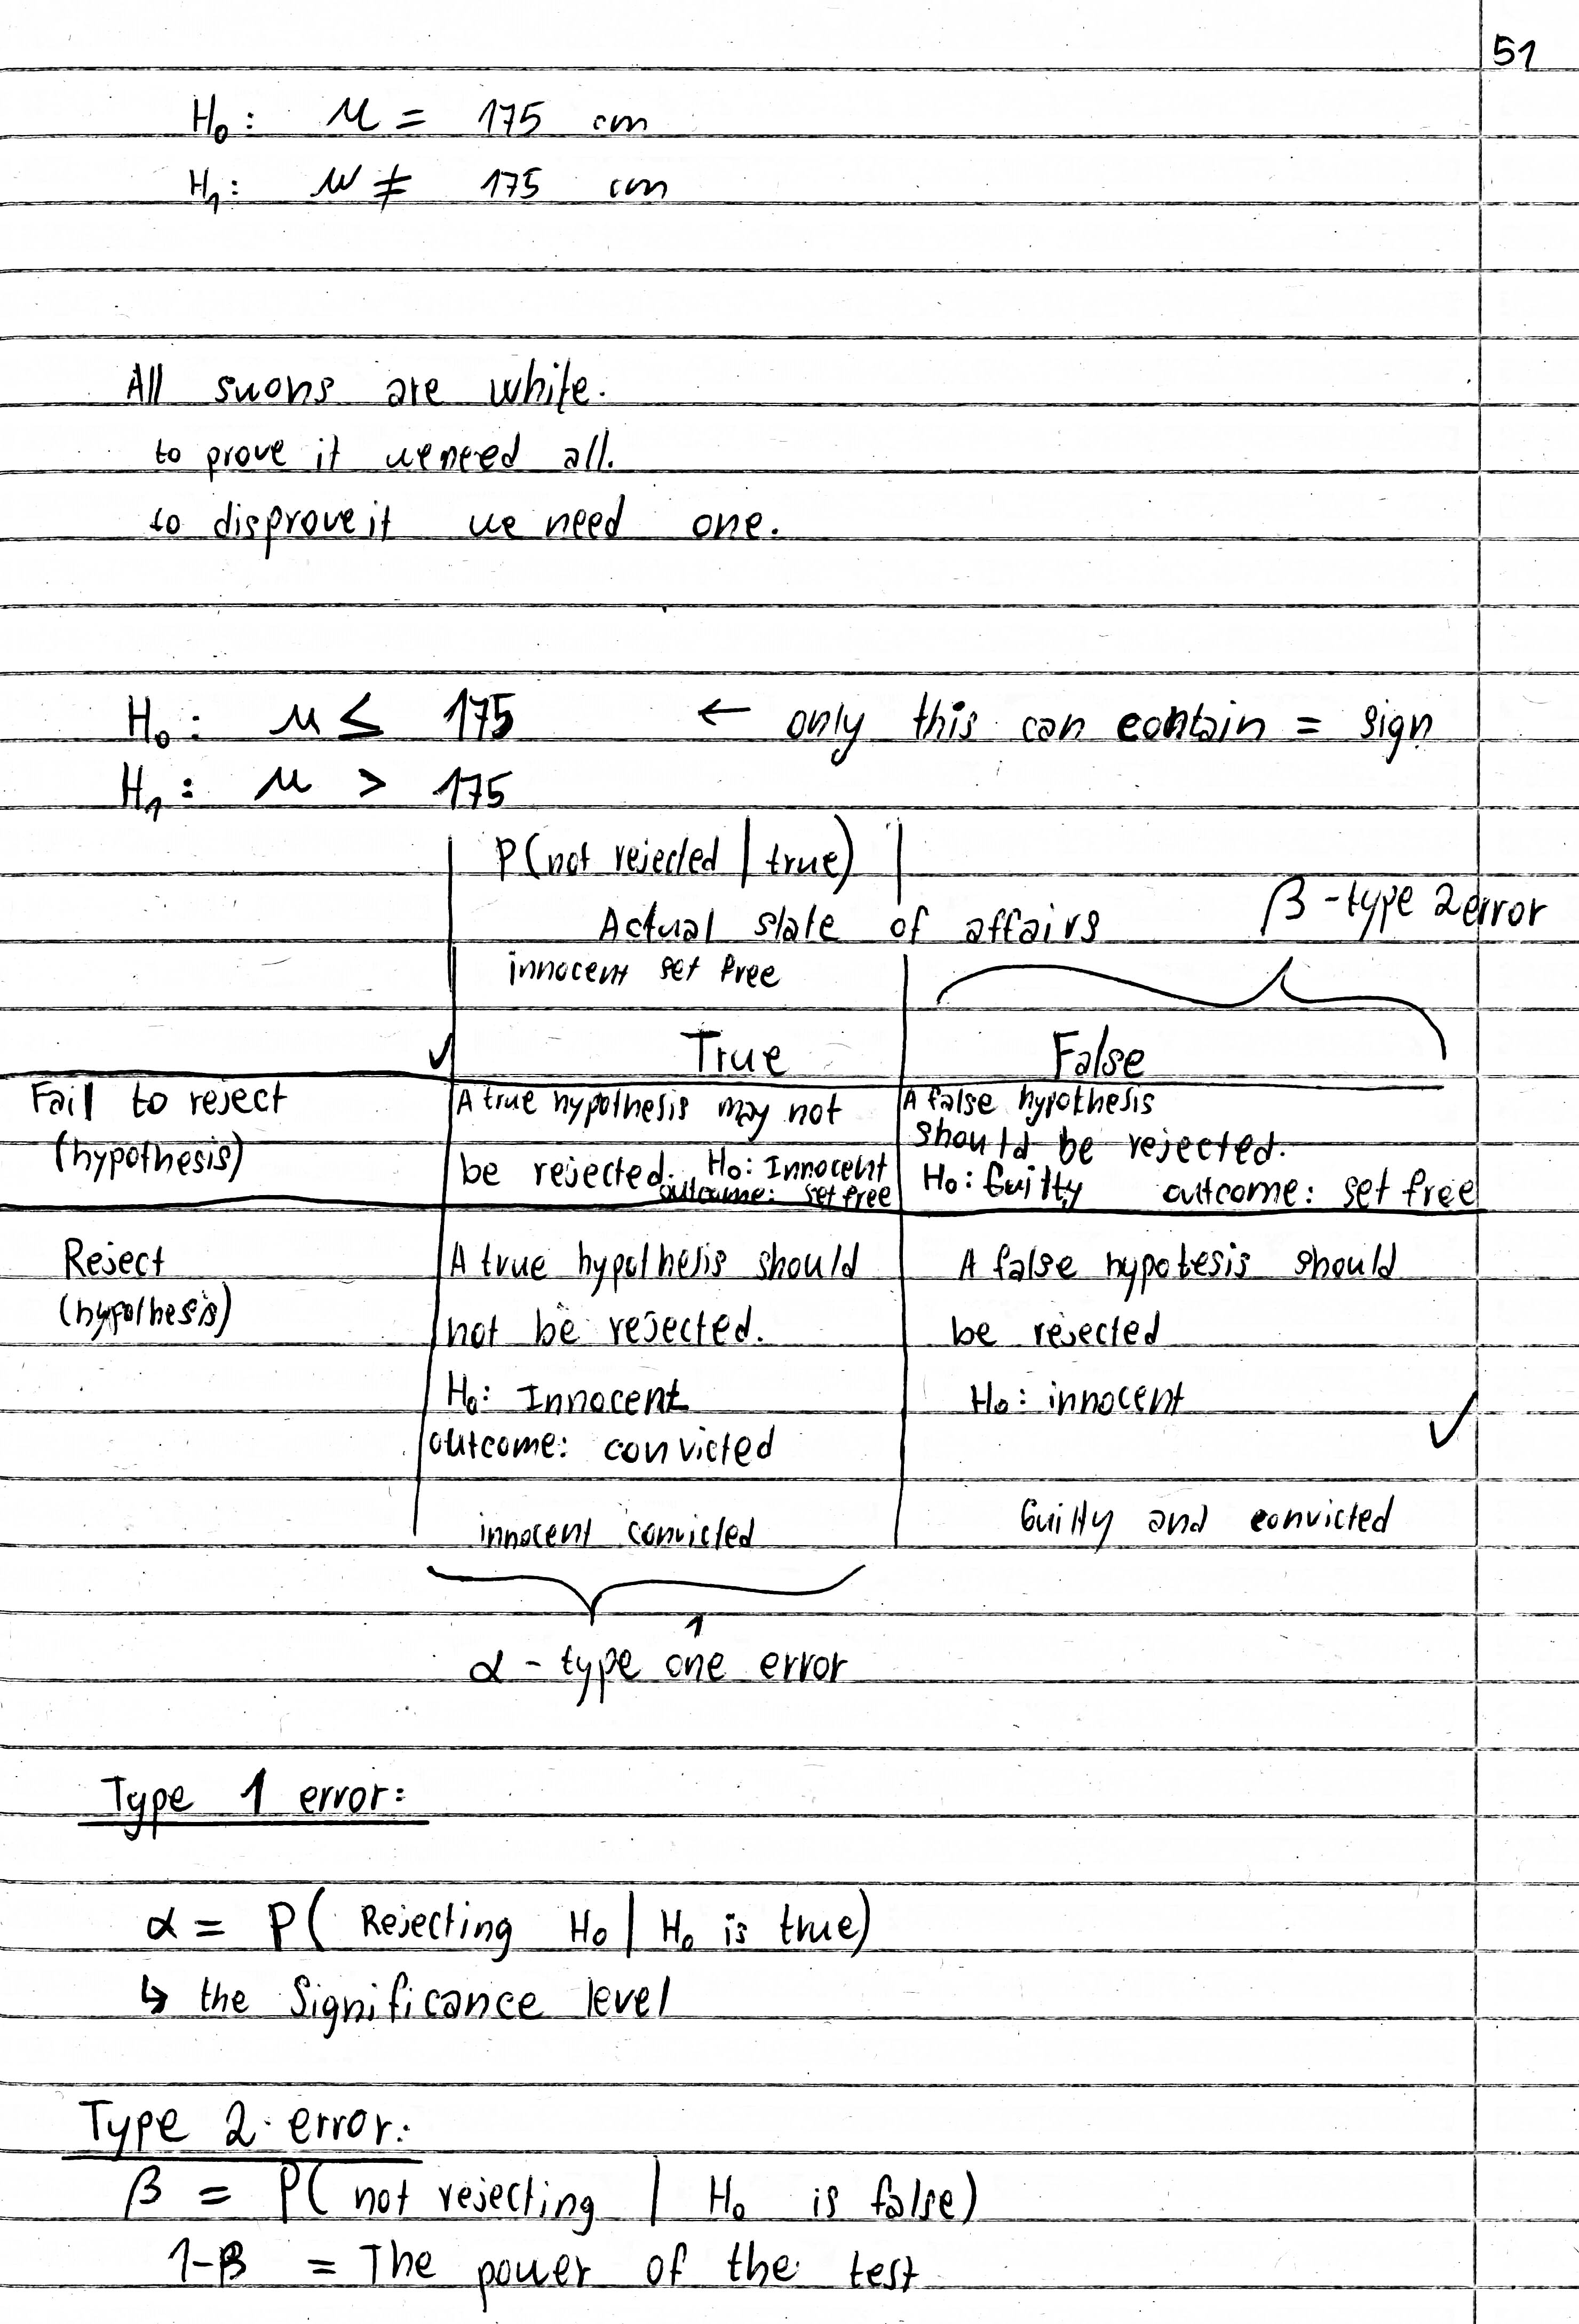 51
H₀: μ = 175 cm
H₁: μ ≠ 175 cm
All swons are white.
to prove it we need all.
to disprove it we need one.
H₀: μ ≤ 175 ← only this can contain = sign
H₁: μ > 175
P(not rejected | true)
β - type 2 error
Actual state of affairs
innocent set free
✓ True False
Fail to reject
(hypothesis)
A true hypothesis may not
be rejected. H₀: Innocent
outcome: set free
A false hypothesis
should be rejected.
H₀: Guilty outcome: set free
Reject
(hypothesis)
A true hypothesis should
not be rejected.
H₀: Innocent
outcome: convicted
innocent convicted
A false hypotesis should
be rejected
H₀: innocent ✓
Guilty and convicted
1
α - type one error
Type 1 error:
α = P( Rejecting H₀ | H₀ is true)
↳ the Significance level
Type 2 error:
β = P( not rejecting | H₀ is false)
1-β = The power of the test